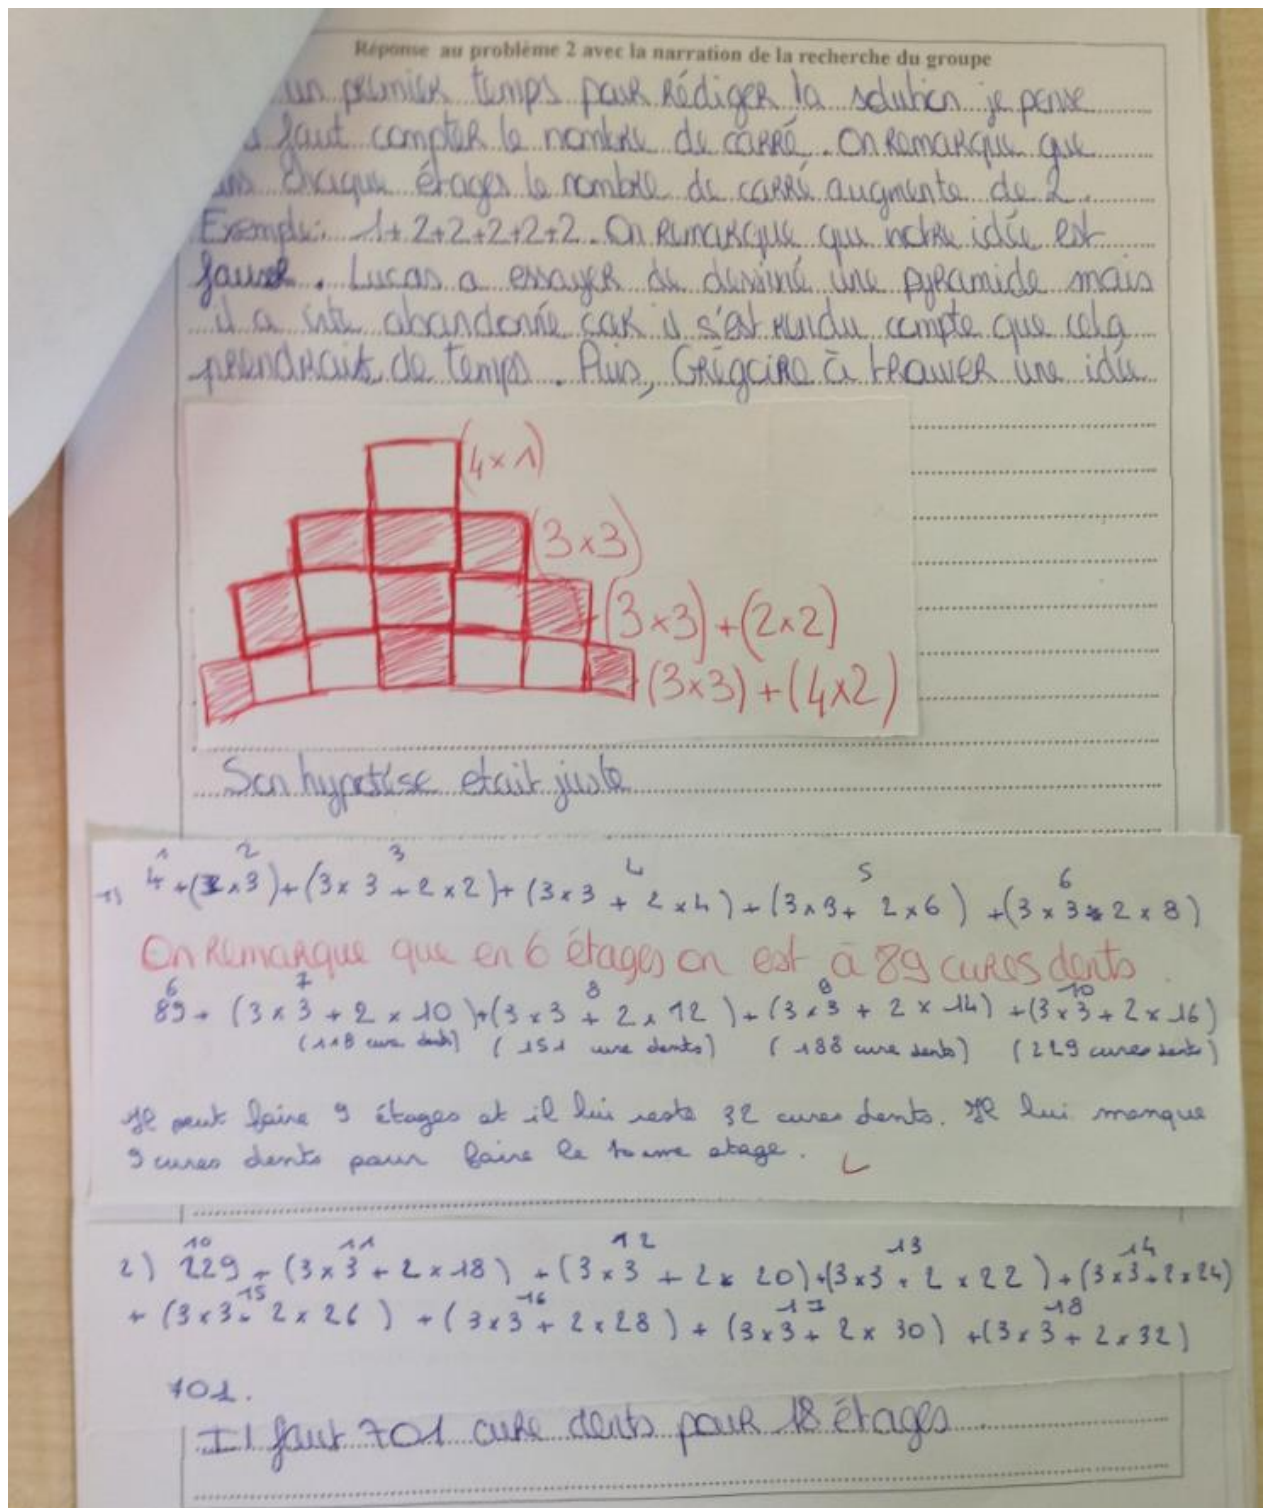 Réponse au problème 2 avec la narration de la recherche du groupe
un premier temps pour Rédiger la solution je pense
faut compter le nombre de carré. On Remarque que
chaque étages le nombre de carré augmente de 2.
Exemple: 1+2+2+2+2+2. On Remarque que notre idée est
fausse. Lucas a essayer de dessiné une pyramide mais
il a vite abandonnée car il s'est rendu compte que cela
prendrait de temps. Puis, Grégoire à trouver une idée
(4×1)
(3×3)
(3×3)+(2×2)
(3×3)+(4×2)
Son hypotése etait juste
1 2 3 4 5 6
1) 4+(3×3)+(3×3+2×2)+(3×3+2×4)+(3×3+2×6)+(3×3+2×8)
On Remarque que en 6 étages on est à 89 cures dents.
6 7 8 9 10
89+(3×3+2×10)+(3×3+2×12)+(3×3+2×14)+(3×3+2×16)
(118 cure dents) (151 cure dents) (188 cure dents) (229 cures dents)
Il peut faire 9 étages et il lui reste 32 cures dents. Il lui manque
9 cures dents pour faire le 10 eme etage.
10 11 12 13 14
2) 229+(3×3+2×18)+(3×3+2×20)+(3×3+2×22)+(3×3+2×24)
15 16 17 18
+(3×3+2×26)+(3×3+2×28)+(3×3+2×30)+(3×3+2×32)
701.
Il faut 701 cure dents pour 18 étages.